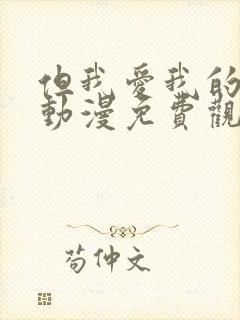 但我愛我的
動漫免費觀
苟仲文